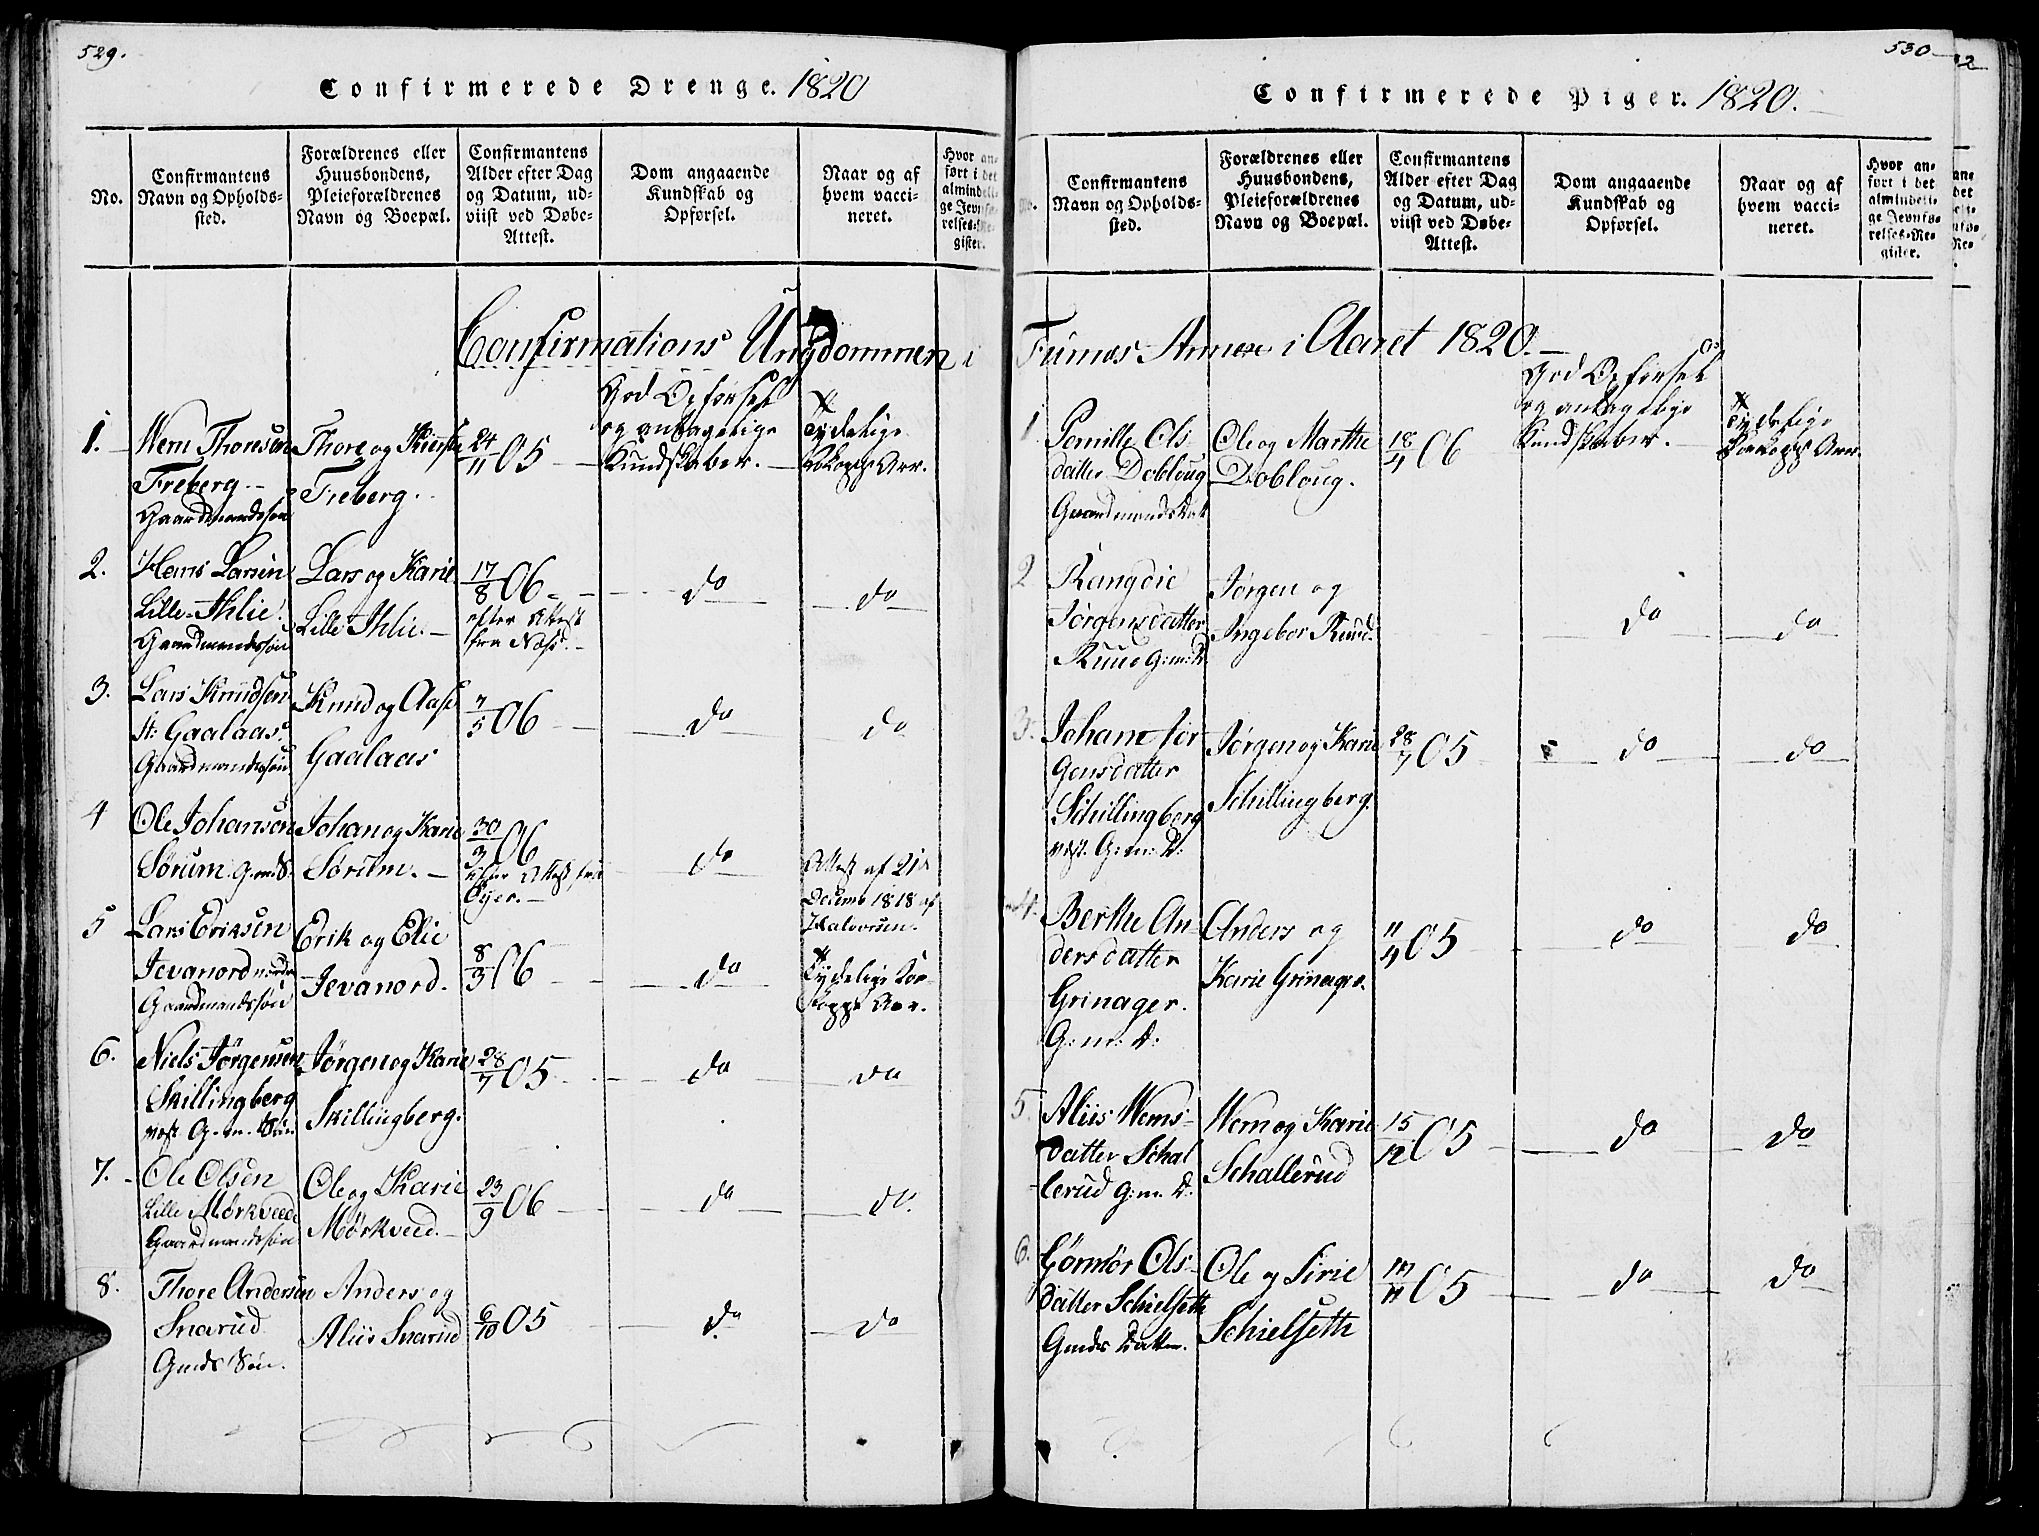 529.
Confirmerede Drenge. 1820
No.
Confirmantens
Navn og Opholds-
sted.
Forældrenes eller
Huusbondens,
Pleieforældrenes
Navn og Boepæl.
Confirmantens
Alder efter Dag
og Datum, ud-
viist ved Døbe-
Attest.
Dom angaaende
Kundskab og
Opførsel.
Naar og af
hvem vacci-
neret.
Hvor an-
ført i det
almindeli-
ge Jevnfø-
relses-Re-
gister.
Confirmations Ungdommen i
1.
Wern Thoresen
Freberg.
Gaardmandssøn
Thore og
Freberg.
24/11 05
God Opførsel
og antagelige
Kundskaber.
Tydelige
Kokopps Arr.
2.
Hans Larsen
Lille-Ihlie.
Gaardmandssøn
Lars og Karie
Lille Ihlie.
17/8 06
efter Attest
fra Næss.
do
do
3.
Lars Knudsen
st: Gaalaas.
Gaardmandssøn
Knud og Aase
Gaalaas
7/5 06
do
do
4
Ole Johansen
Sørum. G.m.S.
Johan og Karie
Sørum.
30/3 06
Attest fra
Øyer.
do
Attest af 21de
Decemb 1818 af
Halvorsen.
5
Lars Eriksen
Jevanord nordre
Gaardmandssøn
Erik og Elie
Jevanord.
8/3 06
do
Tydelige Koe-
kopps Arr.
6.
Niels Jørgensen
Skillingberg
vest. G. m. Søn
Jørgen og Karie
Skillingberg.
28/7 05
do
do
7.
Ole Olsen
Lille Mørkveed
Gaardmandssøn
Ole og Karie
Mørkveed.
23/9 06
do
do.
8.
Thore Andersen
Snarud
Gmds Søn.
Anders og
Aliis Snarud
6/10 05
do
do
530
Confirmerede Piger. 1820.
Confirmantens
Navn og Opholds-
sted.
Forældrenes eller
Huusbondens,
Pleieforældrenes
Navn og Boepæl.
Confirmantens
Alder efter Dag
og Datum, ud-
viist ved Døbe-
Attest.
Dom angaaende
Kundskab og
Opførsel.
Naar og af
hvem vacci-
neret.
Hvor an-
ført i det
almindeli-
ge Jevnfø-
relses-Re-
gister.
Furnæs Annex i Aaret 1820.
1
Pernille Ols-
datter Dobloug
Gaardmandsdatt
Ole og Marthe
Dobloug.
18/4 06
God Opførsel
og antagelige
Kundskaber.
Tydelige
Koekopps Arr.
2
Rangdie
Jørgensdatter
Ruud G:m:D:
Jørgen og
Ingebor Ruud.
do
do
3.
Johane Jør
gensdatter
Schillingberg
vest. G:m: D:
Jørgen og Karie
Schillingberg.
28/7 05
do
do
4.
Berthe An-
dersdatter
Grinager.
G:m: D:
Anders og
Karie Grinager.
11/4 05
do
do
5.
Aliis Wems-
datter Schal
lerud G:m: D:
Wem og Karie
Schallerud
15/12 05
do
do
6.
Gørnør Ols-
datter Schielseth
Gmds Datter.
Ole og Sirie
Schielseth
05
do
do